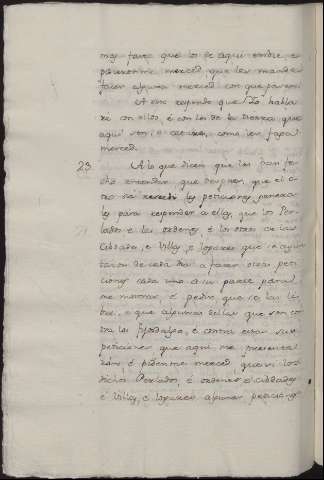 mas farc que los de aqui embie, e
pidenme merced que les mande
facer alguna merced con que
A esto respondo que Yo hablar
re con ellos, é con los de la tierra que
aqui son, é como les faga
merced.
23 A lo que dicen que les han fe
cho entender que despues que el o
tro dia recebi las peticiones para
las para responder a ellas, que los Per
lados é las ordenes, é los otros de las
Cibdades, é Villas, é logares que se ayun
taron de cada dia a facer otras peti
ciones cada uno a su parte para
me mostrar, é pedir que se las li
bre, é que algunas dellas que son con
tra los fijosdalgo, é contra estas sus
peticiones que aqui me presenta
é pidenme merced que si los
dichos Perlados, é ordenes é Cibdades
é Villas, é logares algunas peticiones